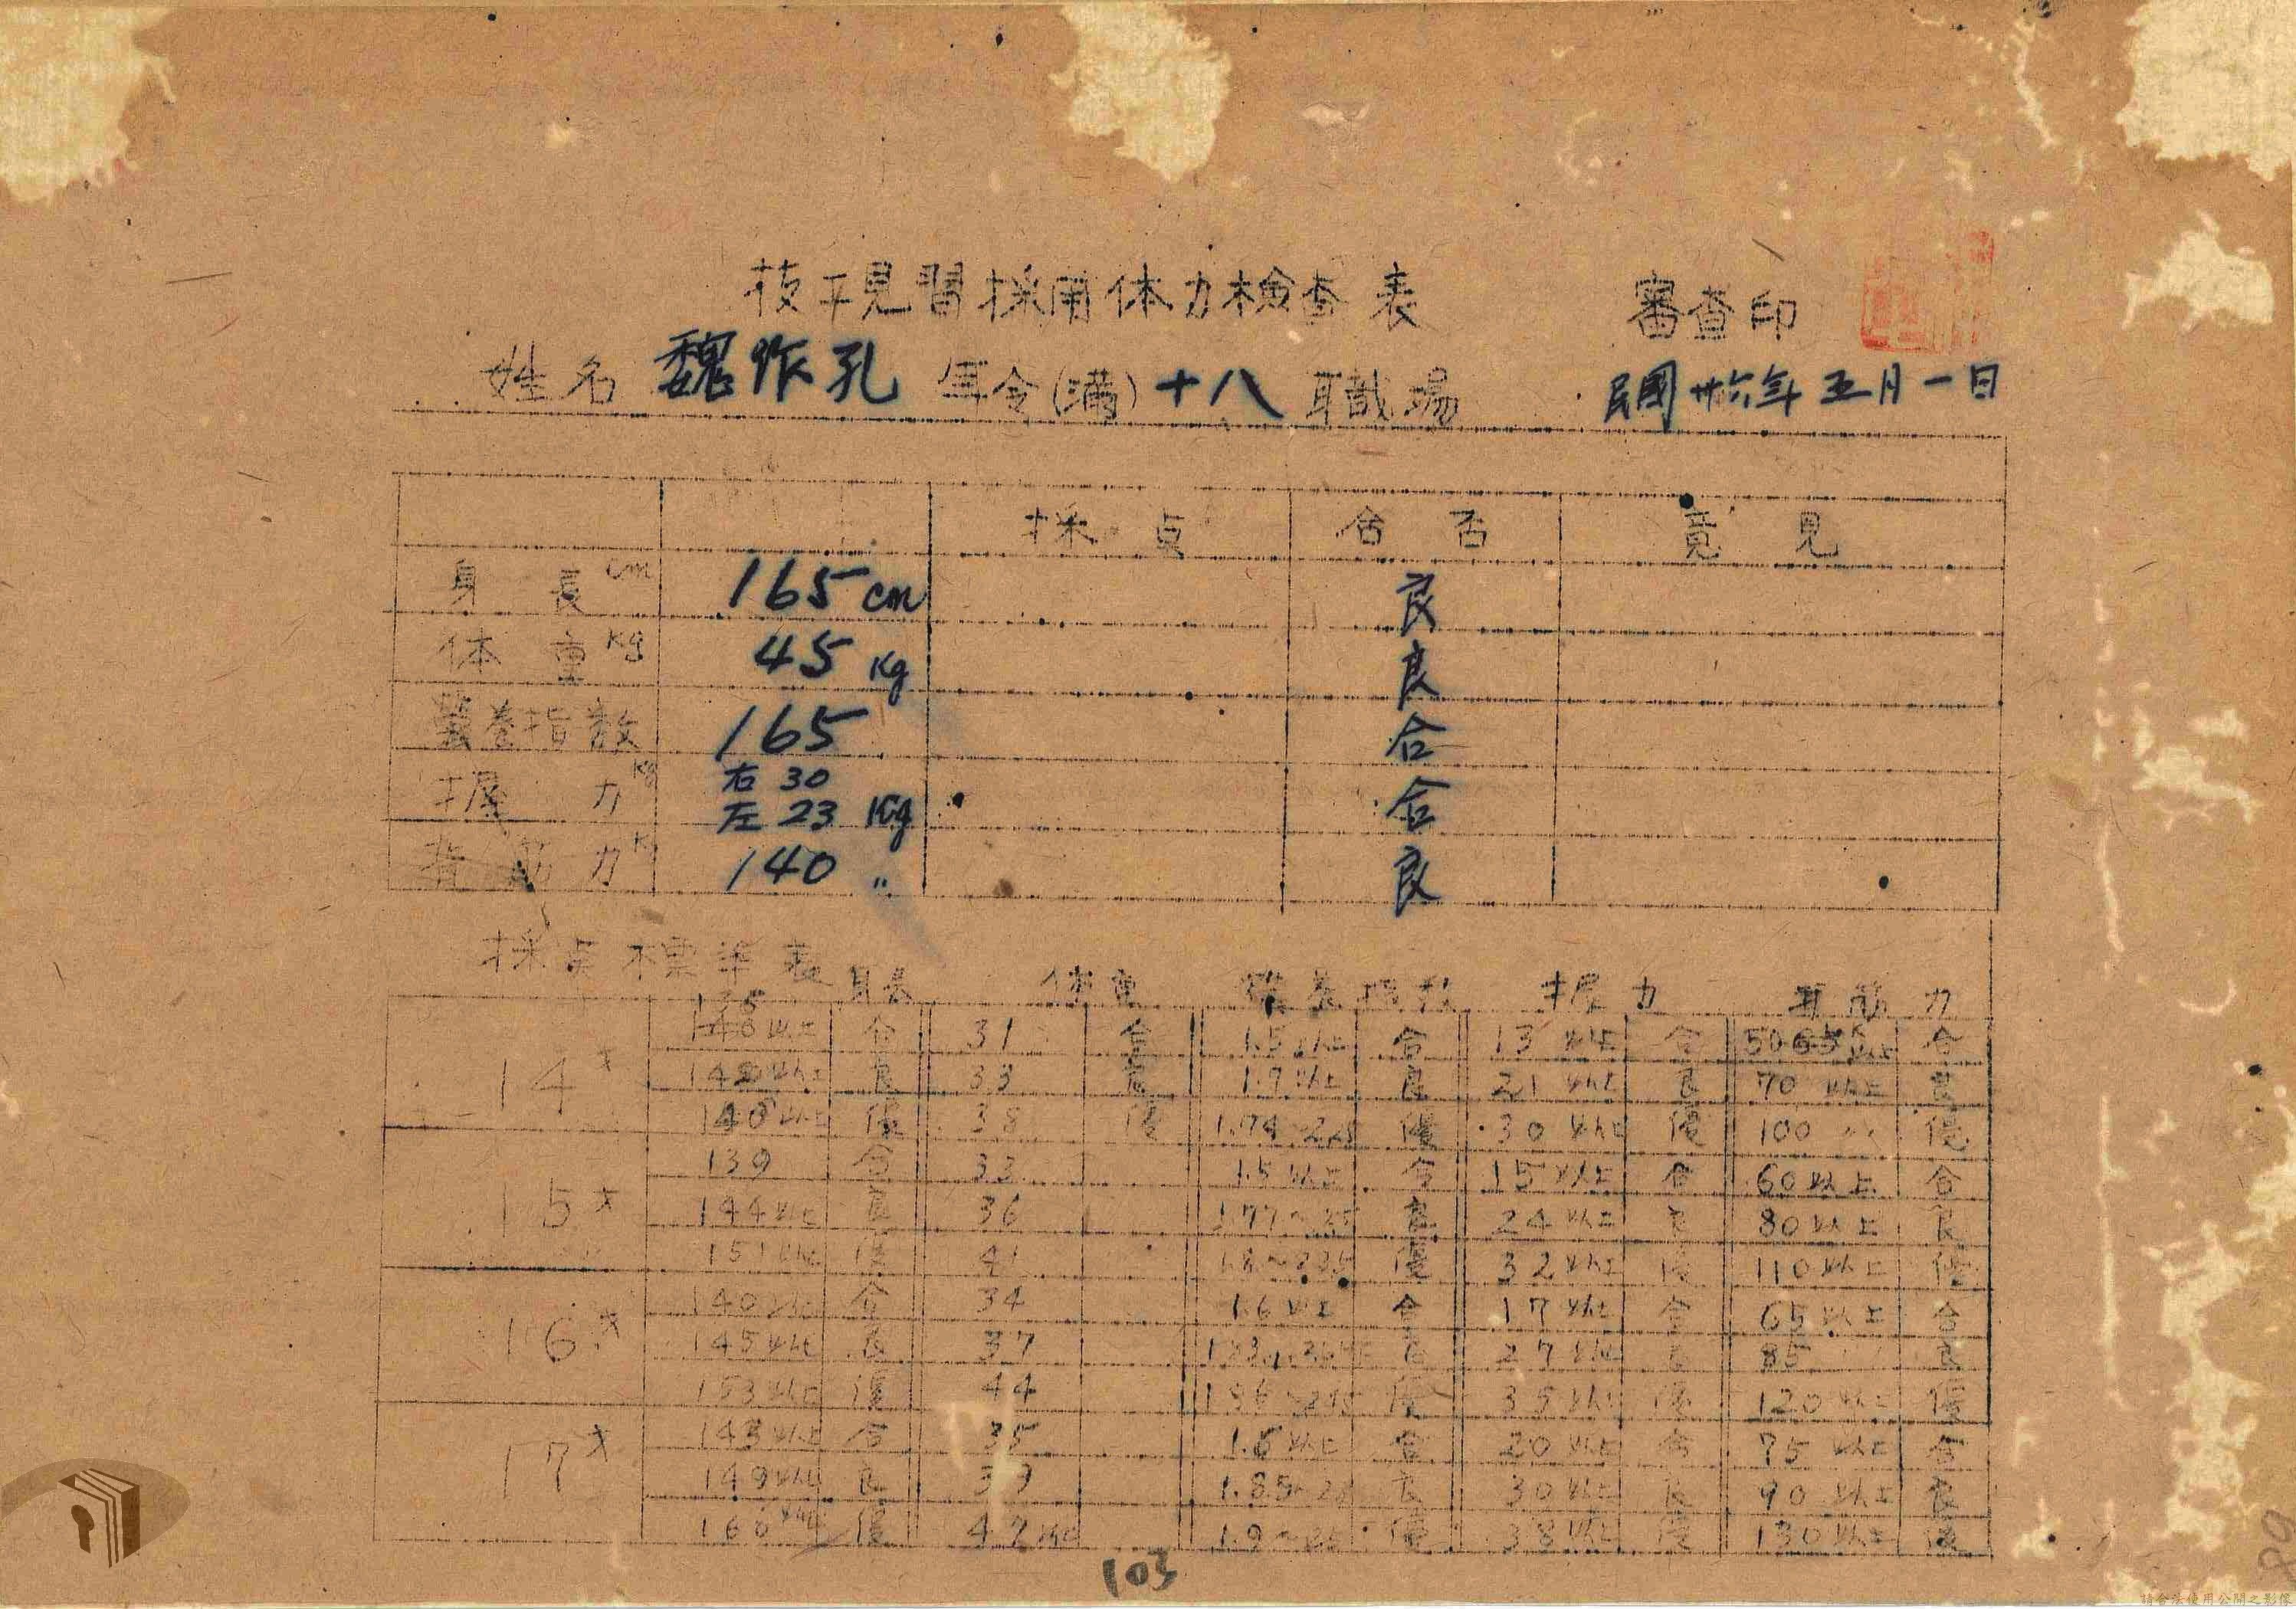 技工見習採用体力檢查表 審查印
姓名 魏作孔 年令(満) 十八 職場 民國卅六年五月一日
採点 合否 意見
身長 cm 165 cm 良
体重 Kg 45 Kg 良
営養指数 165 合
握力 Kg 右 30 左 23 Kg 合
背筋力 K 140 〃 良
採点標準表 身長 体重 営養指数 握力 背筋力
14才 合 31 合 1.5以上 合 13以上 合 合
良 33 良 1.7以上 良 21以上 良 70以上 良
優 38 優 優 30以上 優 100 〃 優
15才 139 合 33 1.5以上 合 15以上 合 60以上 合
144以上 良 36 良 24以上 良 80以上 良
151以上 優 41 優 32以上 優 110以上 優
16才 140以上 合 34 1.6以上 合 17以上 合 65以上 合
145以上 良 37 良 27以上 良 85 〃 良
153以上 優 44 優 35以上 優 120以上 優
17才 143以上 合 35 1.6以上 合 20以上 合 75以上 合
149以上 良 39 良 30以上 良 90以上 良
160以上 優 47以上 優 38以上 優 130以上 優
103
請合法使用公開之影像